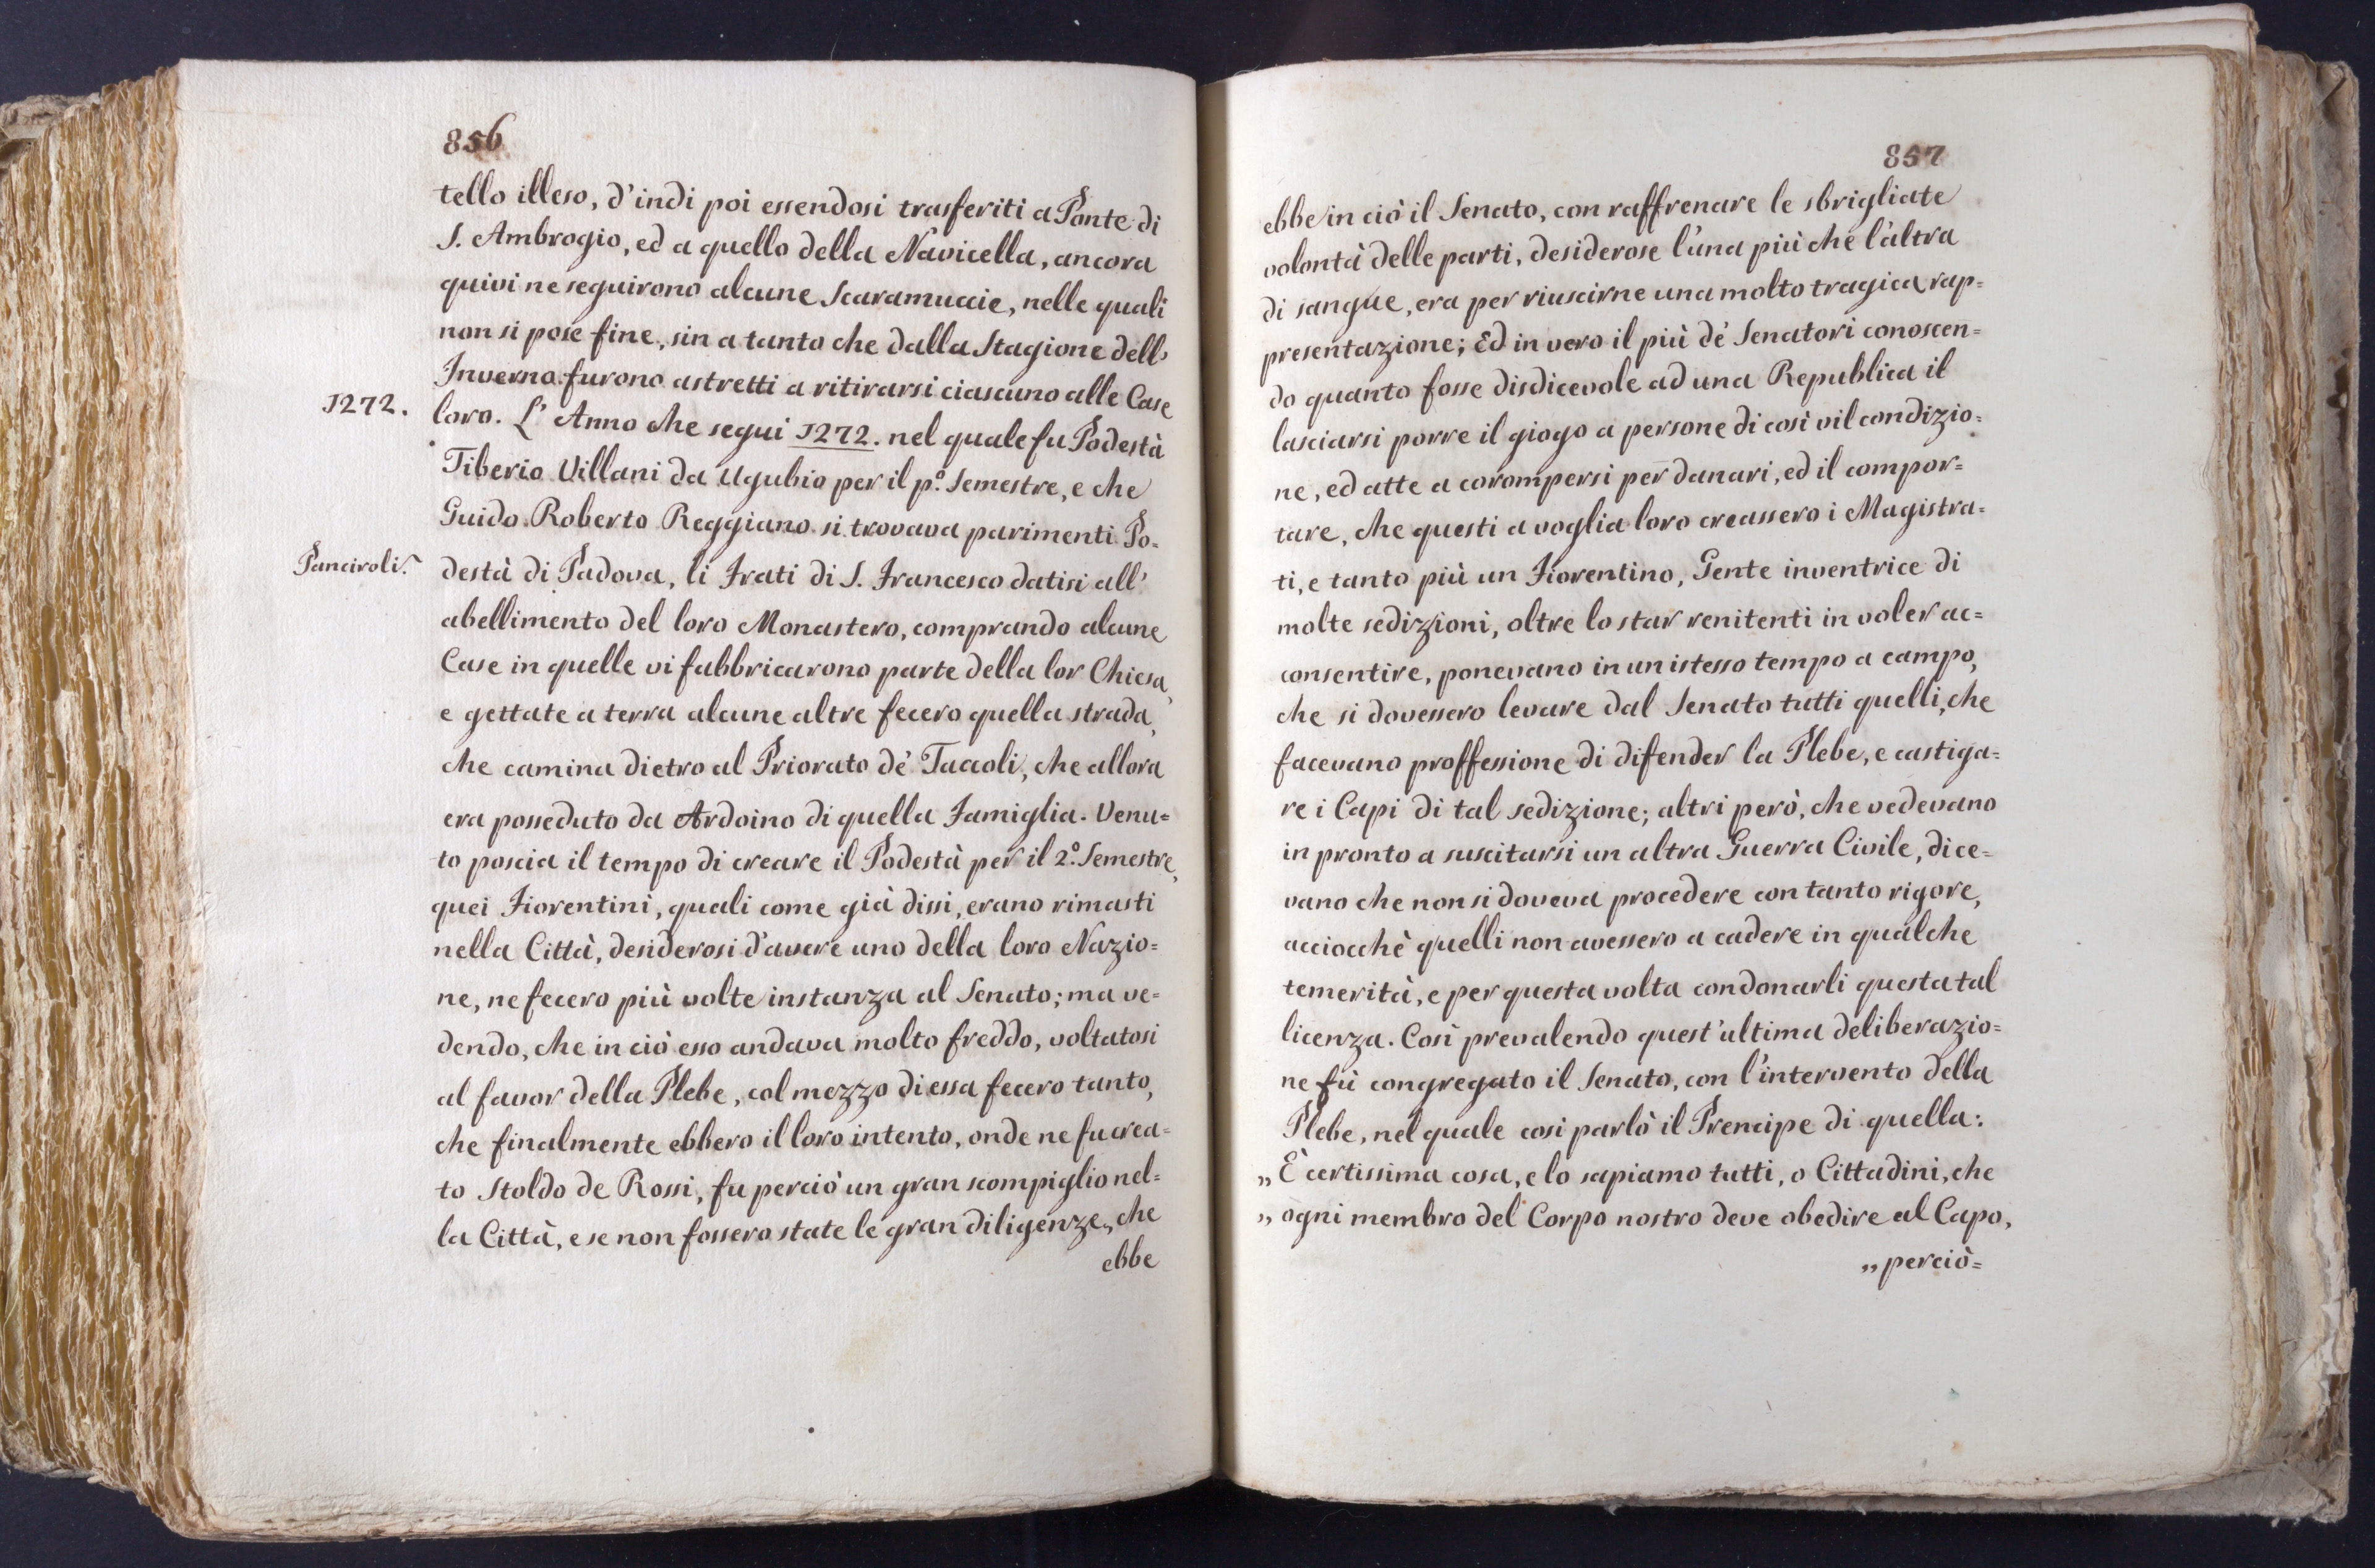 856
tello illeso, d'indi poi essendosi trasferiti a Ponte di
S. Ambrogio, ed a quello della Navicella, ancora
quivi ne seguirono alcune Scaramuccie, nelle quali
non si pose fine, sin a tanto che dalla Stagione dell'
Inverno furono astretti a ritirarsi ciascuno alle Case
1272.
loro. L' Anno che segui 1272. nel quale fu Podestà
Tiberio Villani da Ugubio per il p.º Semestre, e che
Guido Roberto Reggiano si trovava parimenti Po=
Panciroli.
destà di Padova, li Frati di S. Francesco datisi all'
abellimento del loro Monastero, comprando alcune
Case in quelle vi fabbricarono parte della lor Chiesa,
e gettate a terra alcune altre fecero quella strada,
che camina dietro al Priorato de' Taccoli, che allora
era posseduto da Ardoino di quella Famiglia. Venu=
to poscia il tempo di creare il Podestà per il 2º. Semestre,
quei Fiorentini, quali come già dissi, erano rimasti
nella Città, desiderosi d'avere uno della loro Nazio=
ne, ne fecero più volte instanza al Senato; ma ve=
dendo, che in ciò esso andava molto freddo, voltatosi
al favor della Plebe, col mezzo di essa fecero tanto,
che finalmente ebbero il loro intento, onde ne fu crea=
to Stoldo de Rossi, fu perciò un gran scompiglio nel=
la Città, e se non fossero state le gran diligenze, che
ebbe
857
ebbe in ciò il Senato, con raffrenare le sbrigliate
volontà delle parti, desiderose l'una più che l'altra
di sangue, era per riuscirne una molto tragica rap=
presentazione; Ed in vero il più de' Senatori conoscen=
do quanto fosse disdicevole ad una Republica il
lasciarsi porre il giogo a persone di così vil condizio=
ne, ed atte a corompersi per danari, ed il compor=
tare, che questi a voglia loro creassero i Magistra=
ti, e tanto più un Fiorentino, Gente inventrice di
molte sedizioni, oltre lo star renitenti in voler ac=
consentire, ponevano in un istesso tempo a campo,
che si dovessero levare dal Senato tutti quelli, che
facevano proffessione di difender la Plebe, e castiga=
re i Capi di tal sedizione; altri però, che vedevano
in pronto a suscitarsi un altra Guerra Civile, dice=
vano che non si doveva procedere con tanto rigore,
acciocchè quelli non avessero a cadere in qualche
temerità, e per questa volta condonarli questa tal
licenza. Così prevalendo quest'ultima deliberazio=
ne fù congregato il Senato, con l'intervento della
Plebe, nel quale cosi parlò il Prencipe di quella:
„ È certissima cosa, e lo sapiamo tutti, o Cittadini, che
„ ogni membro del Corpo nostro deve obedire al Capo,
„ perciò=